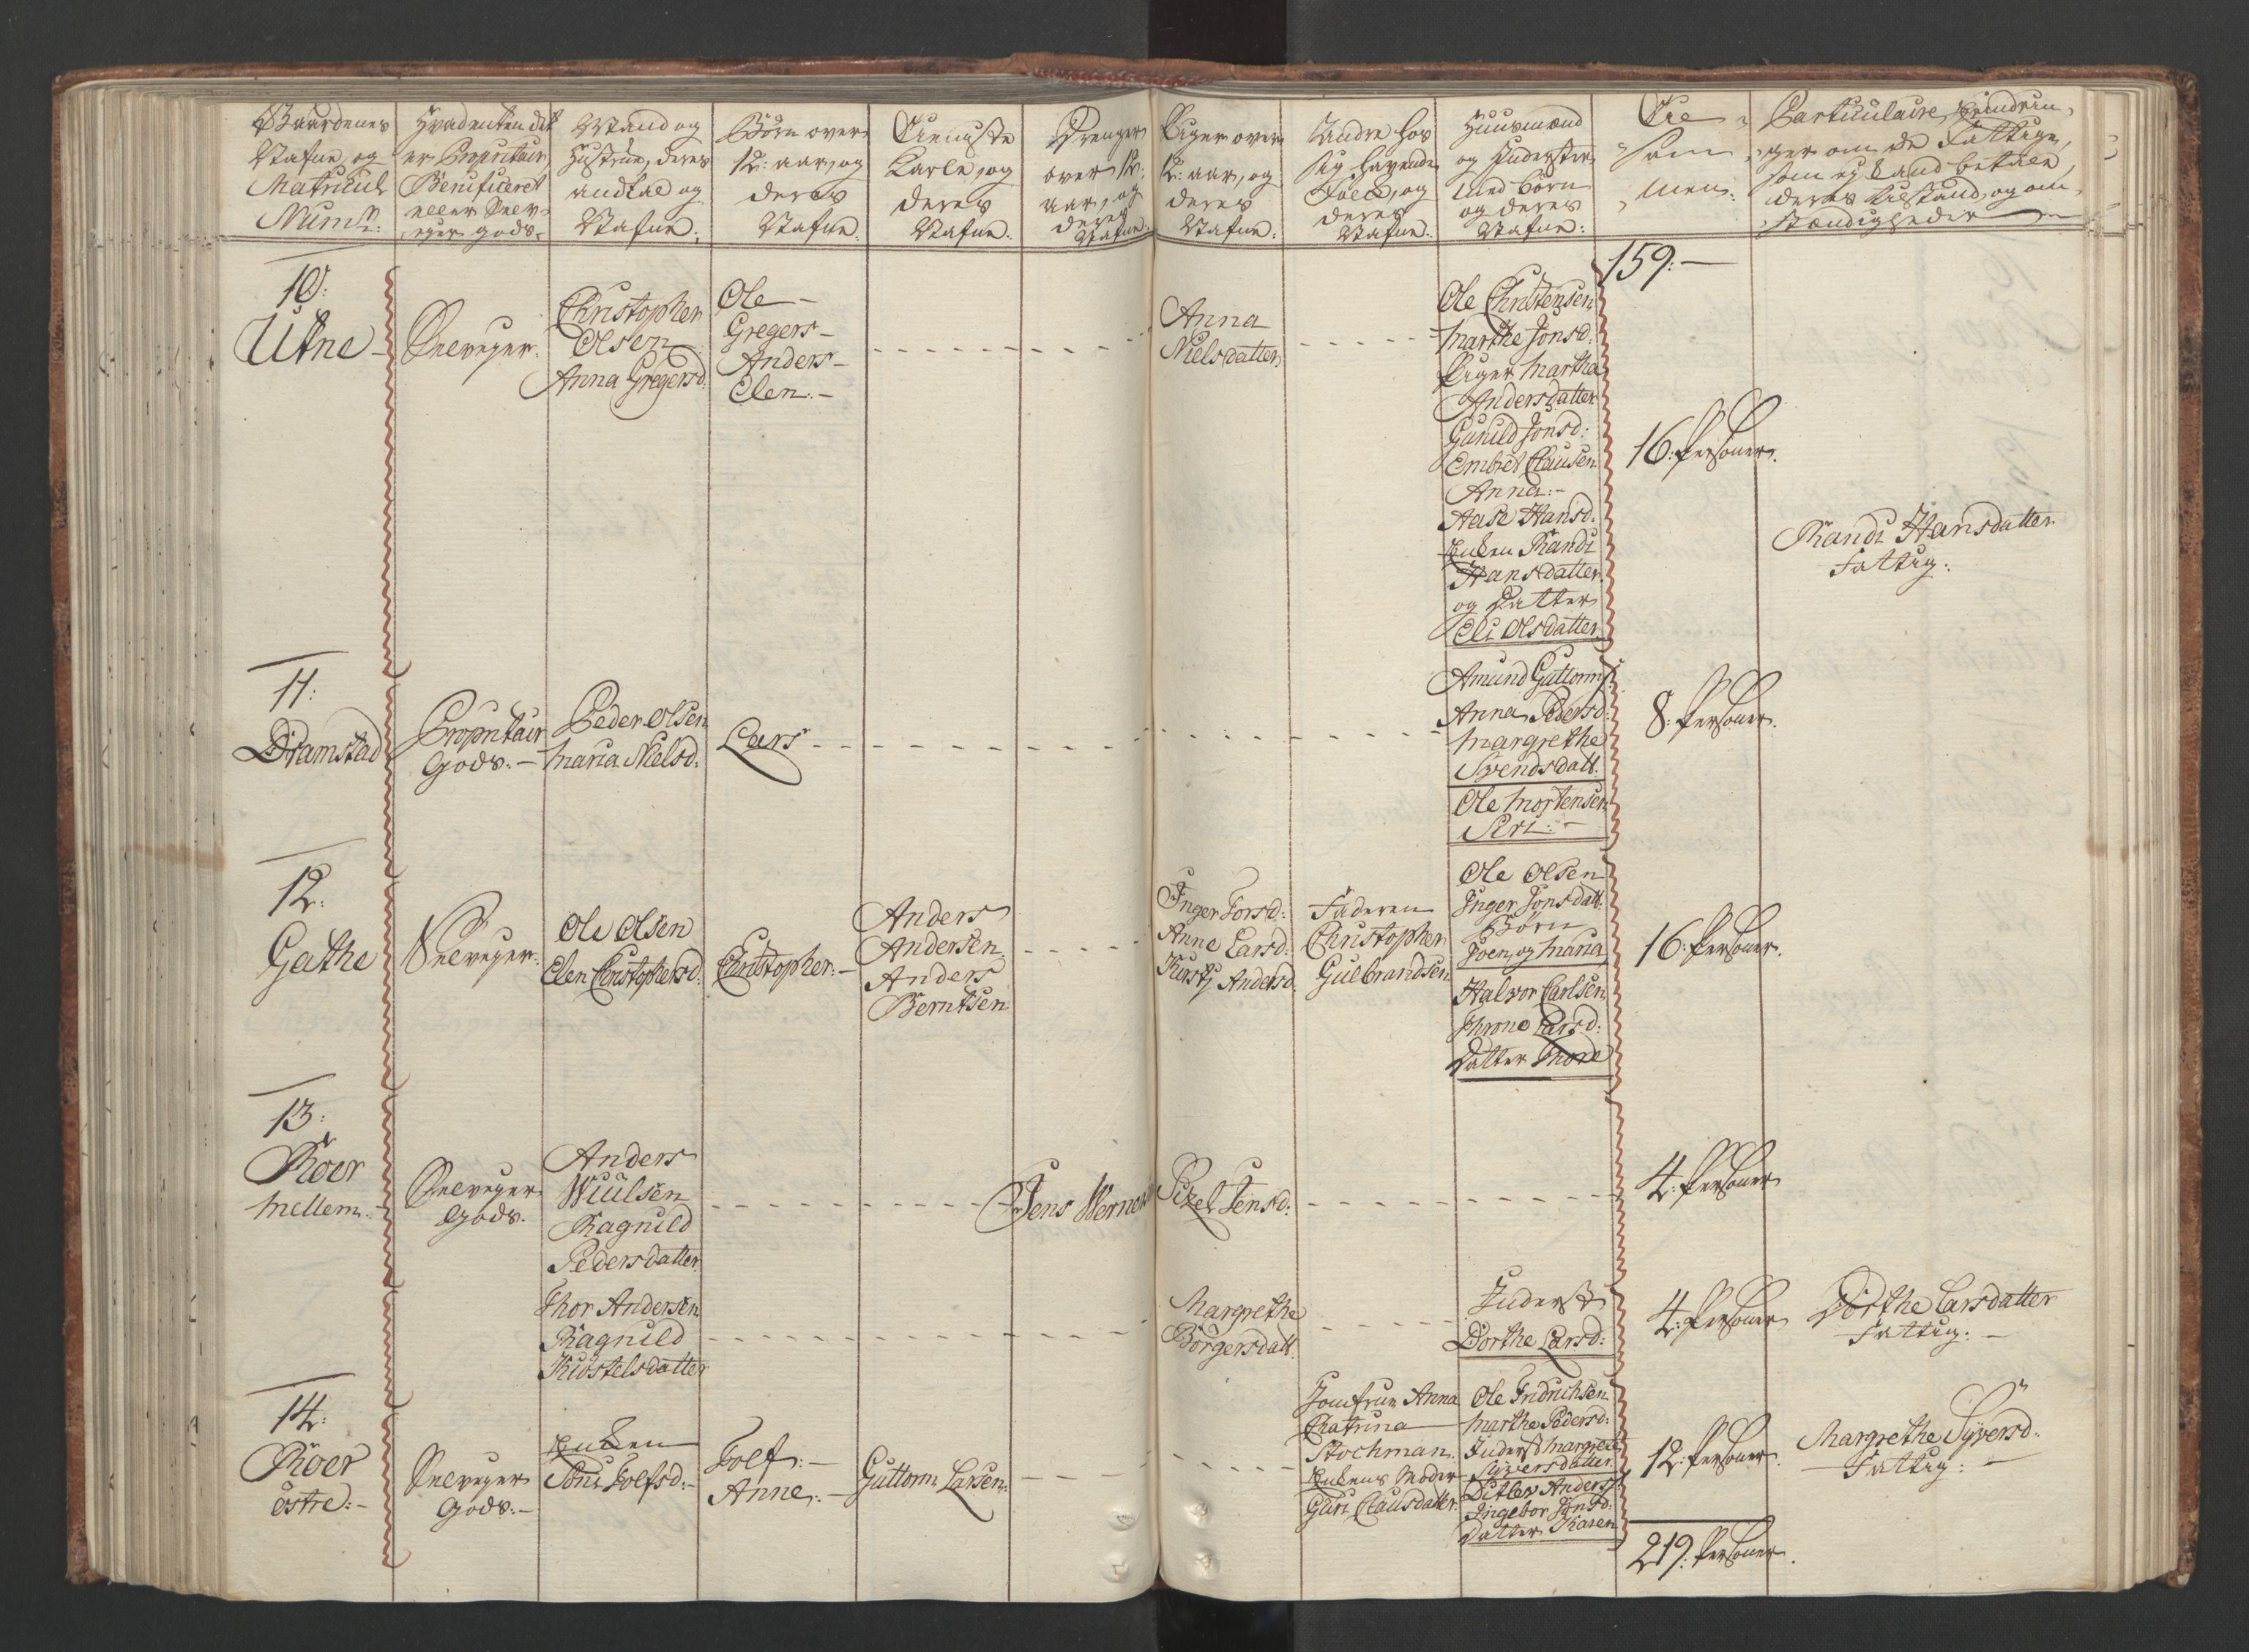 Gaardenes
Nafne, og
Matricul
Num̅:
Hvad enten det
er Proprietair,
Beneficeret
eller Selv-
eyer gods.
Mand og
Hustrue, deres
andtal og
Nafne:
Börn over
12: aar, og
deres
Nafne.
Tieniste
Karle, og
deres
Nafne:
Drenger
over 12:
aar, og
deres
Nafne:
Piger over
12: aar, og
deres
Nafne:
Andre hos
sig havende
Folck, og
deres
Nafne:
Huusmænd
og Inderster
med börn
og deres
Nafne:
Til-
sam-
men:
Particulaire
om de Fattige,
som ej kand betale
deres tilstand, og om-
stændigheder
159:—
10:
Utne
Selveyer:
Christopher
Olsen
Anna Gregersd:
Ole —
Gregers —
Anders —
Elen: —
Anna
Nielsdatter
Ole Christensen
Marthe Jonsd:
Piger Martha
Andersdatter
Gunild Jonsd:
Embret Clausen
Anna: —
Aase Hansd:
Enken Randi
Hansdatter
og Datter
Eli Olsdatter
16: Personer.
Randi Hansdatter
Fattig:
11:
Dramstad
Proprietair
Gods: —
Peder Olsen
Maria Nielsd:
Lars
Amund Guttorms:
Anna Pedersd:
Margrethe
Svendsdatt:
Ole Mortensen
Siri: —
8: Personer.
12:
Gathe
Selveyer:
Ole Olsen
Elen Christophersd:
Christopher: —
Anders
Andersen
Anders
Berntsen
Inger Torsd:
Anne Larsd:
Kirstj Andersd:
Faderen
Christopher
Gulbrandsen
Ole Olsen
Inger Jonsdatt:
Börn
Joen, og Maria
Halvor Carlsen
Throne Larsd:
Datter Thore
16: Personer.
13:
Röer
Mellem: —
Selveyer
Gods.
Anders
Wiulsen
Ragnild
Pedersdatter
Jens Werners
Sizel Jensd:
4: Personer
Thor Andersen
Ragnild
Kiöstelsdatter
Margrethe
Börgersdatt:
Inderst
Dorthe Larsd:
4: Personer
Dorthe Larsdatter
Fattig: —
14:
Röer
östre: —
Selveyer
Gods: —
Enken
Toni Tolfsd: —
Tolf: —
Anne: —
Guttorm Larsen:
Jomfrue Anna
Chatrina
Stochman:
Enkens Moder
Guri Clausdatter:
Ole Fridrichsen
Marthe Pedersd:
Inderst Margrete
Syversdatter
Ditlev Anders:
Ingebor Jonsd:
Datter Karen
12: Personer.
Margrethe Syversd:
Fattig: —
219: Personer.